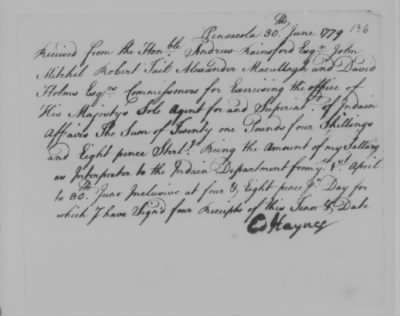 Pensacola 30.th June 1779
136
Received from the Hon.ble Andrew Rainsford Esq.r John
Mitchel Robert Tait Alexander Macullagh and David
Holms Esq.rs Commissioners for Exercising the office of
His Majestys Sole Agent for and Superint.t of Indain
Affairs The Sum of Twenty one Pounds four Shillings
and Eight pence Sterl.g Being the Amount of my Sallary
as Interpreter to the Indain Department from y.e 1.st April
to 30.th June Inclusive at four & Eight pence p.r Day for
which I have Sign'd four Receipts of this Tenor & Date
C Haynes